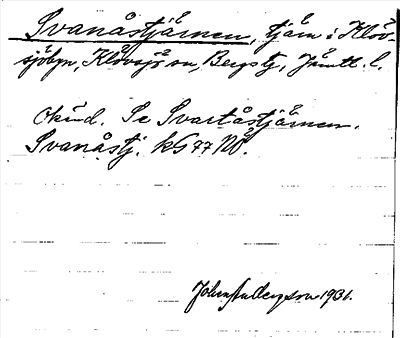 Svanåstjärnen, tjärn i Klöv-
sjöbyn, Klövsjö sn, Bergs tg, Jämtl. l.
Okänd. Se Svartåstjärnen.
Svanåstj. kG 77 NO.
Johan Andersson 1931.